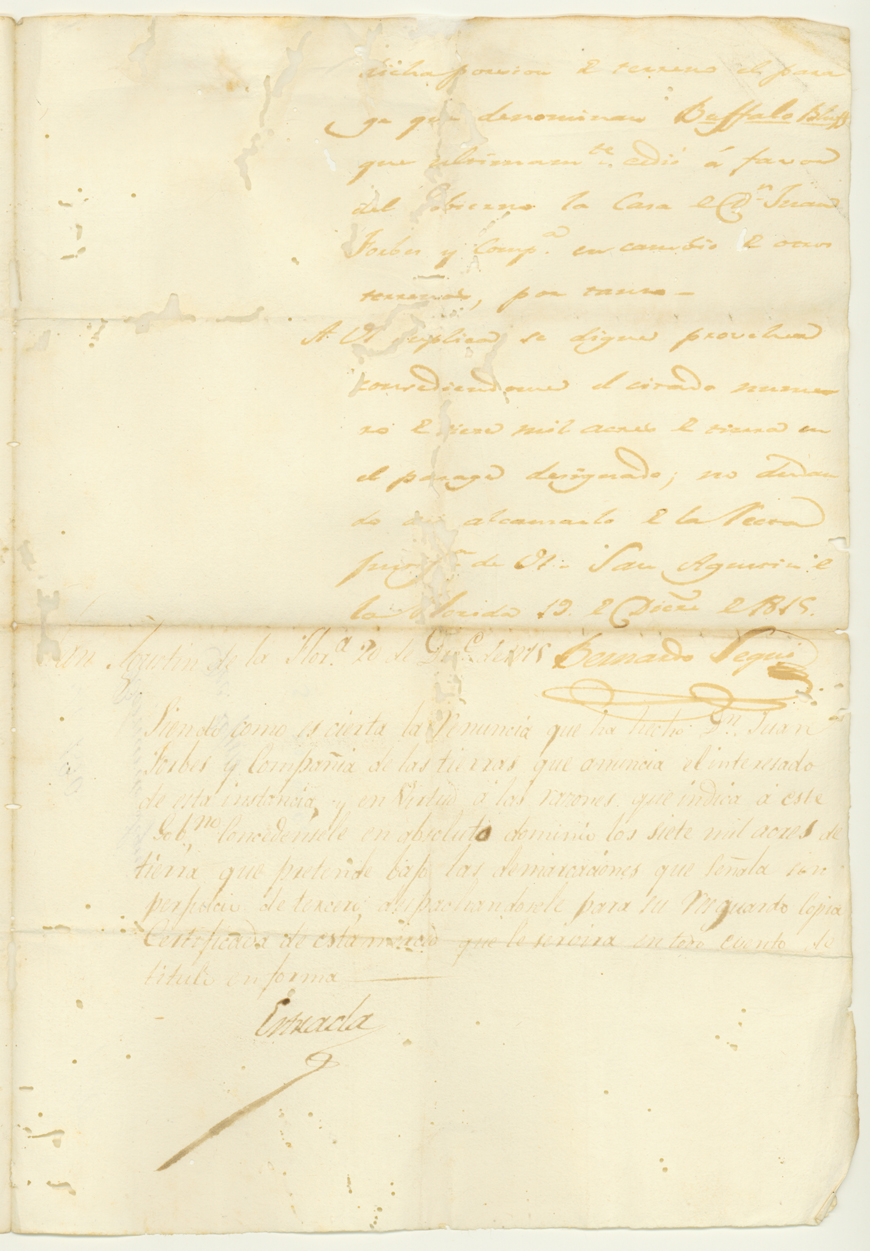 dicha porcion de terreno el para
ge que denominan Buffalo Bluff
que ultimam.te cedió á favor
del Gobierno la Casa de D.n Juan
Forbes y Comp.a en cambio de otros
terrenos, por tanto —
A. VS suplica se digne proveher
consediendome el citado nume
ro de siete mil acres de tierra en
el parage designado;
alcansarlo de la Recta
de VS. San Agustin de
la Florida 19. de Dicre de 1815.
Bernardo Segui
Agustin de la Flor.a 20 de Dic.e de 1815
Siendo como es cierta la Renuncia que ha hecho D.n Juan
Forbes y Compañia de las tierras que anuncia el interesado
de esta instancia, y en virtud á las razones que indica á este
Gob.no Concedensele en absoluto dominio los siete mil acres de
tierra que pretende bajo las demarcaciones que señala sin
perjuicio de tercero, despachandosele para su resguardo Copia
Certificada de esta que le servira en todo evento de
titulo en forma
Estrada